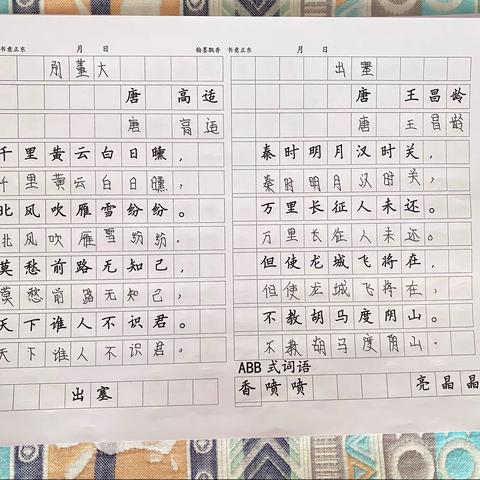 书意正东 月 日 翰墨飘香
别董大
唐 高适
唐 高适
千里黄云白日曛，
千里黄云白日曛，
北风吹雁雪纷纷。
北风吹雁雪纷纷.
莫愁前路无知己，
莫愁前路无知己，
天下谁人不识君。
天下谁人不识君。
出塞
书意正东 月 日
出塞
唐 王昌龄
唐 王昌龄
秦时明月汉时关，
秦时明月汉时关，
万里长征人未还。
万里长征人未还。
但使龙城飞将在，
但使龙城飞将在，
不教胡马度阴山。
不教胡马度阴山。
ABB 式词语
香喷喷 亮晶晶